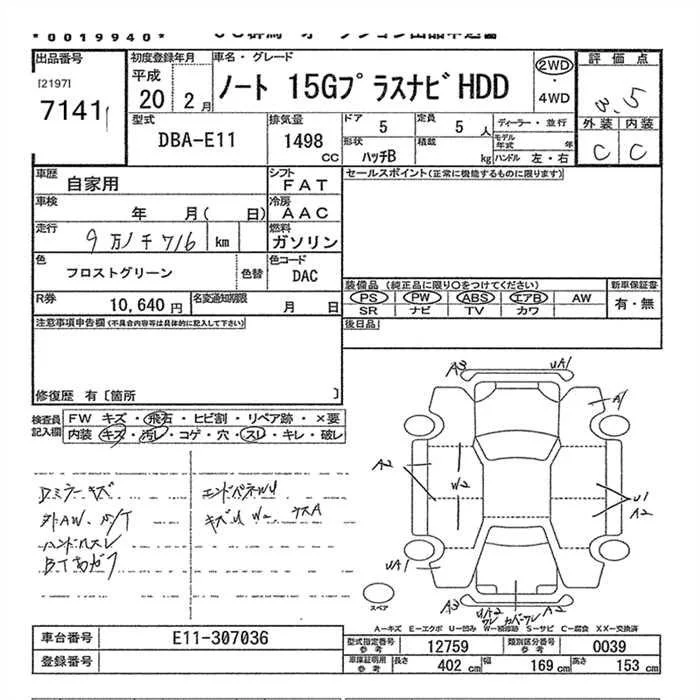 *0019940*
出品番号
[2197]
7141
初度登録年月
平成
20 2月
車名・グレード
ノート 15Gプラスナビ HDD
2WD
・
4WD
評価点
3.5
外装 内装
C C
型式
DBA-E11
排気量
1498
CC
ドア
5
定員
5 人
ディーラー・並行
モデル年式 年
形状
ハッチB
積載
kg
ハンドル 左・右
車歴
自家用
シフト
FAT
車検
年 月( 日)
冷房
AAC
走行
9万1千716 km
燃料
ガソリン
色
フロストグリーン
色替
色コード
DAC
R券
10,640円
名変通知期限
月 日
セールスポイント(正常に機能するものに限ります)
装備品(純正品に限り○をつけてください)
PS PW ABS エアB AW
SR ナビ TV カワ
新車保証書
有・無
後日品
注意事項申告欄(不具合内容等は具体的に記入して下さい)
修復歴 有〔箇所 〕
検査員記入欄
FW キズ・飛石・ヒビ割・リペア跡・×要
内装 キズ・汚レ・コゲ・穴・スレ・キレ・破レ
Dミラーキズ
ハンドルスレ
A3
UA1
A1
A2
W2
U1
A2
UA1
A3
A2
スペア
A-キズ E-エクボ U-凹み W-補修跡 S-サビ C-腐食 XX-交換済
車台番号
E11-307036
登録番号
型式指定番号
参考
12759
類別区分番号
参考
0039
車庫証明用
参考
長さ
402 cm
幅
169 cm
高さ
153 cm